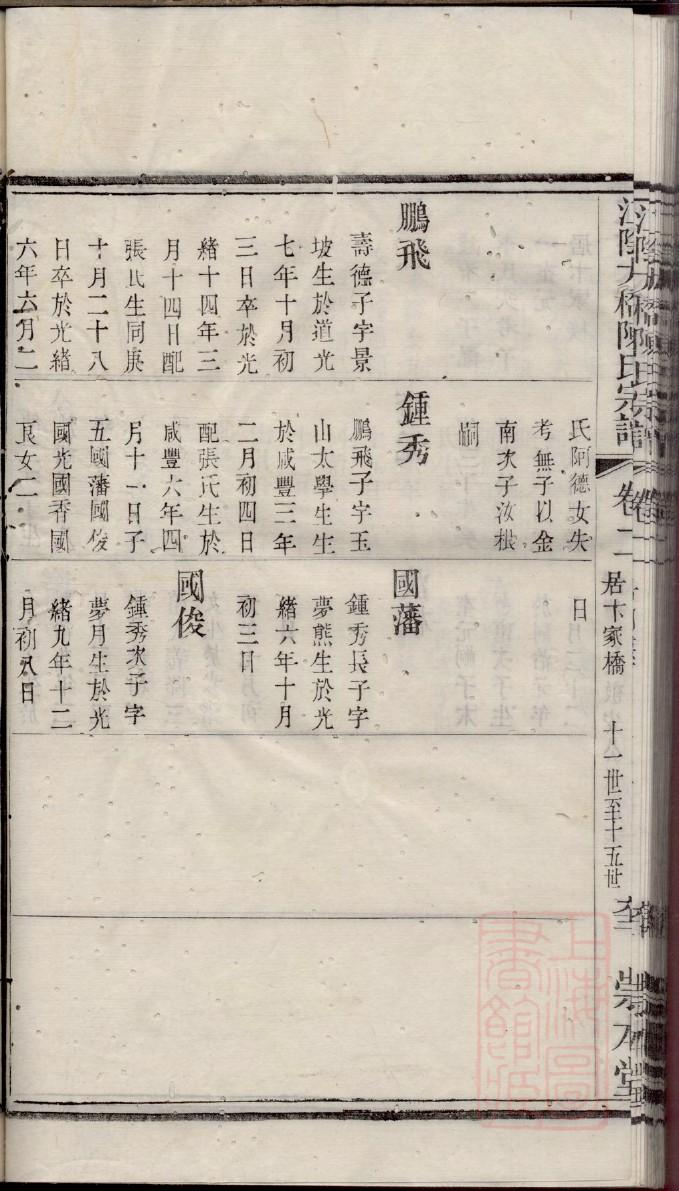 卷二
居卞家橋
十一世至十五世
鵬飛
壽德子字景
坡生於道光
七年十月初
三日卒於光
緒十四年三
月十四日配
張氏生同庚
十月二十八
日卒於光緒
六年六月二
氏阿德女失
考無子以金
南次子汝根
嗣
鍾秀
鵬飛子字玉
山太學生生
於咸豐三年
二月初四日
配張氏生於
咸豐六年四
月十一日子
五國藩國俊
國光國香國
良女二
日
國藩
鍾秀長子字
夢熊生於光
緒六年十月
初三日
國俊
鍾秀次子字
夢月生於光
緒九年十二
月初八日
上海圖
書館藏